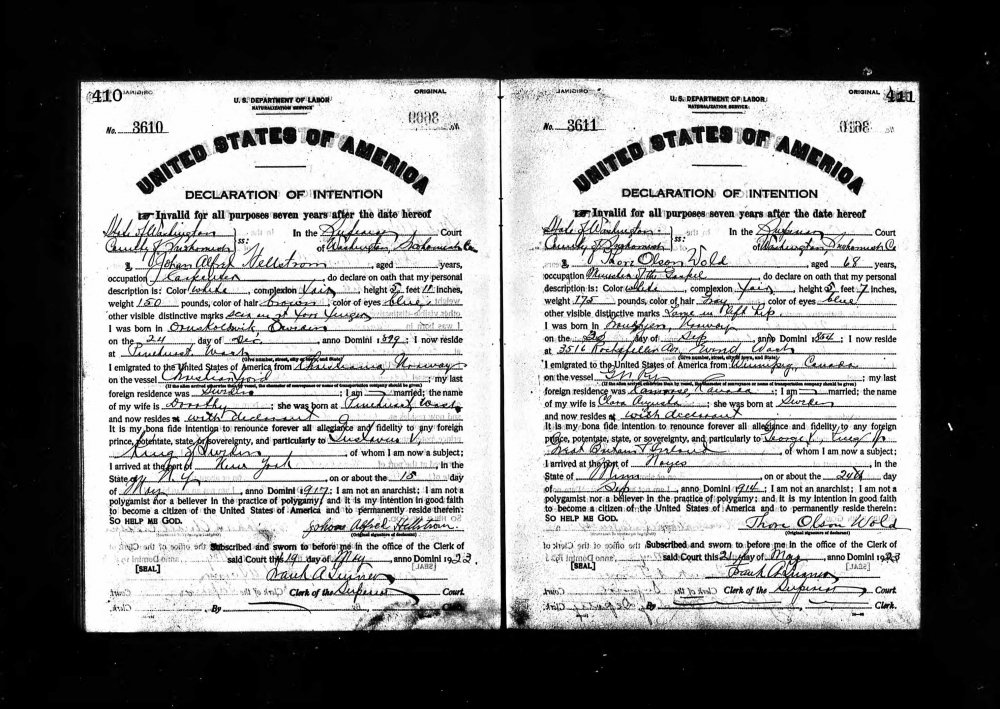 410
ORIGINAL
U. S. DEPARTMENT OF LABOR
NATURALIZATION SERVICE
No. 3610
UNITED STATES OF AMERICA
DECLARATION OF INTENTION
Invalid for all purposes seven years after the date hereof
State of Washington
County of Snohomish
ss:
In the Superior Court
of Washington Snohomish Co
I, Johan Alfred Hellstrom, aged years,
occupation, do declare on oath that my personal
description is: Color white, complexion fair, height 5 feet 11 inches,
weight 150 pounds, color of hair brown, color of eyes blue
other visible distinctive marks scar on finger
I was born in Sweden
on the 24 day of Dec, anno Domini 1; I now reside
at Pinehurst, Wash
(Give number, street, city or town, and State)
I emigrated to the United States of America from Christiania, Norway
on the vessel Christianfjord; my last
(If the alien arrived otherwise than by vessel, the character of conveyance or name of transportation company should be given)
foreign residence was Sweden; I am married; the name
of my wife is Dorothy; she was born at Pinehurst, Wash
and now resides at with declarant
It is my bona fide intention to renounce forever all allegiance and fidelity to any foreign
prince, potentate, state, or sovereignty, and particularly to Gustavus V,
King of Sweden, of whom I am now a subject;
I arrived at the port of New York, in the
State of N. Y, on or about the 15 day
of May, anno Domini 1917; I am not an anarchist; I am not a
polygamist nor a believer in the practice of polygamy; and it is my intention in good faith
to become a citizen of the United States of America and to permanently reside therein:
SO HELP ME GOD.
Johan Alfred Hellstrom
(Original signature of declarant)
Subscribed and sworn to before me in the office of the Clerk of
said Court this 19 day of May, anno Domini 1923
[SEAL]
Frank A Turner
Clerk of the Superior Court.
By, Clerk.
411
ORIGINAL
U. S. DEPARTMENT OF LABOR
NATURALIZATION SERVICE
No. 3611
UNITED STATES OF AMERICA
DECLARATION OF INTENTION
Invalid for all purposes seven years after the date hereof
State of Washington
County of Snohomish
ss:
In the Superior Court
of Washington Snohomish Co
I, Thore Olson Wold, aged 68 years,
occupation Minister of the Gospel, do declare on oath that my personal
description is: Color white, complexion fair, height 5 feet 7 inches,
weight 175 pounds, color of hair gray, color of eyes blue
other visible distinctive marks Lame in left hip
I was born in, Norway
on the day of Sep, anno Domini 1854; I now reside
at 3516 Rockefeller Av, Everett Wash
(Give number, street, city or town, and State)
I emigrated to the United States of America from Winnipeg, Canada
on the vessel G N Ry; my last
(If the alien arrived otherwise than by vessel, the character of conveyance or name of transportation company should be given)
foreign residence was Camrose, Canada; I am married; the name
of my wife is Clara Augusta; she was born at Sweden
and now resides at with declarant
It is my bona fide intention to renounce forever all allegiance and fidelity to any foreign
prince, potentate, state, or sovereignty, and particularly to George V, King of
Great Britain & Ireland, of whom I am now a subject;
I arrived at the port of Noyes, in the
State of Minn, on or about the 24th day
of Sep, anno Domini 1914; I am not an anarchist; I am not a
polygamist nor a believer in the practice of polygamy; and it is my intention in good faith
to become a citizen of the United States of America and to permanently reside therein:
SO HELP ME GOD.
Thore Olson Wold
(Original signature of declarant)
Subscribed and sworn to before me in the office of the Clerk of
said Court this 21 day of May, anno Domini 1923
[SEAL]
Frank A Turner
Clerk of the Superior Court.
By, Clerk.